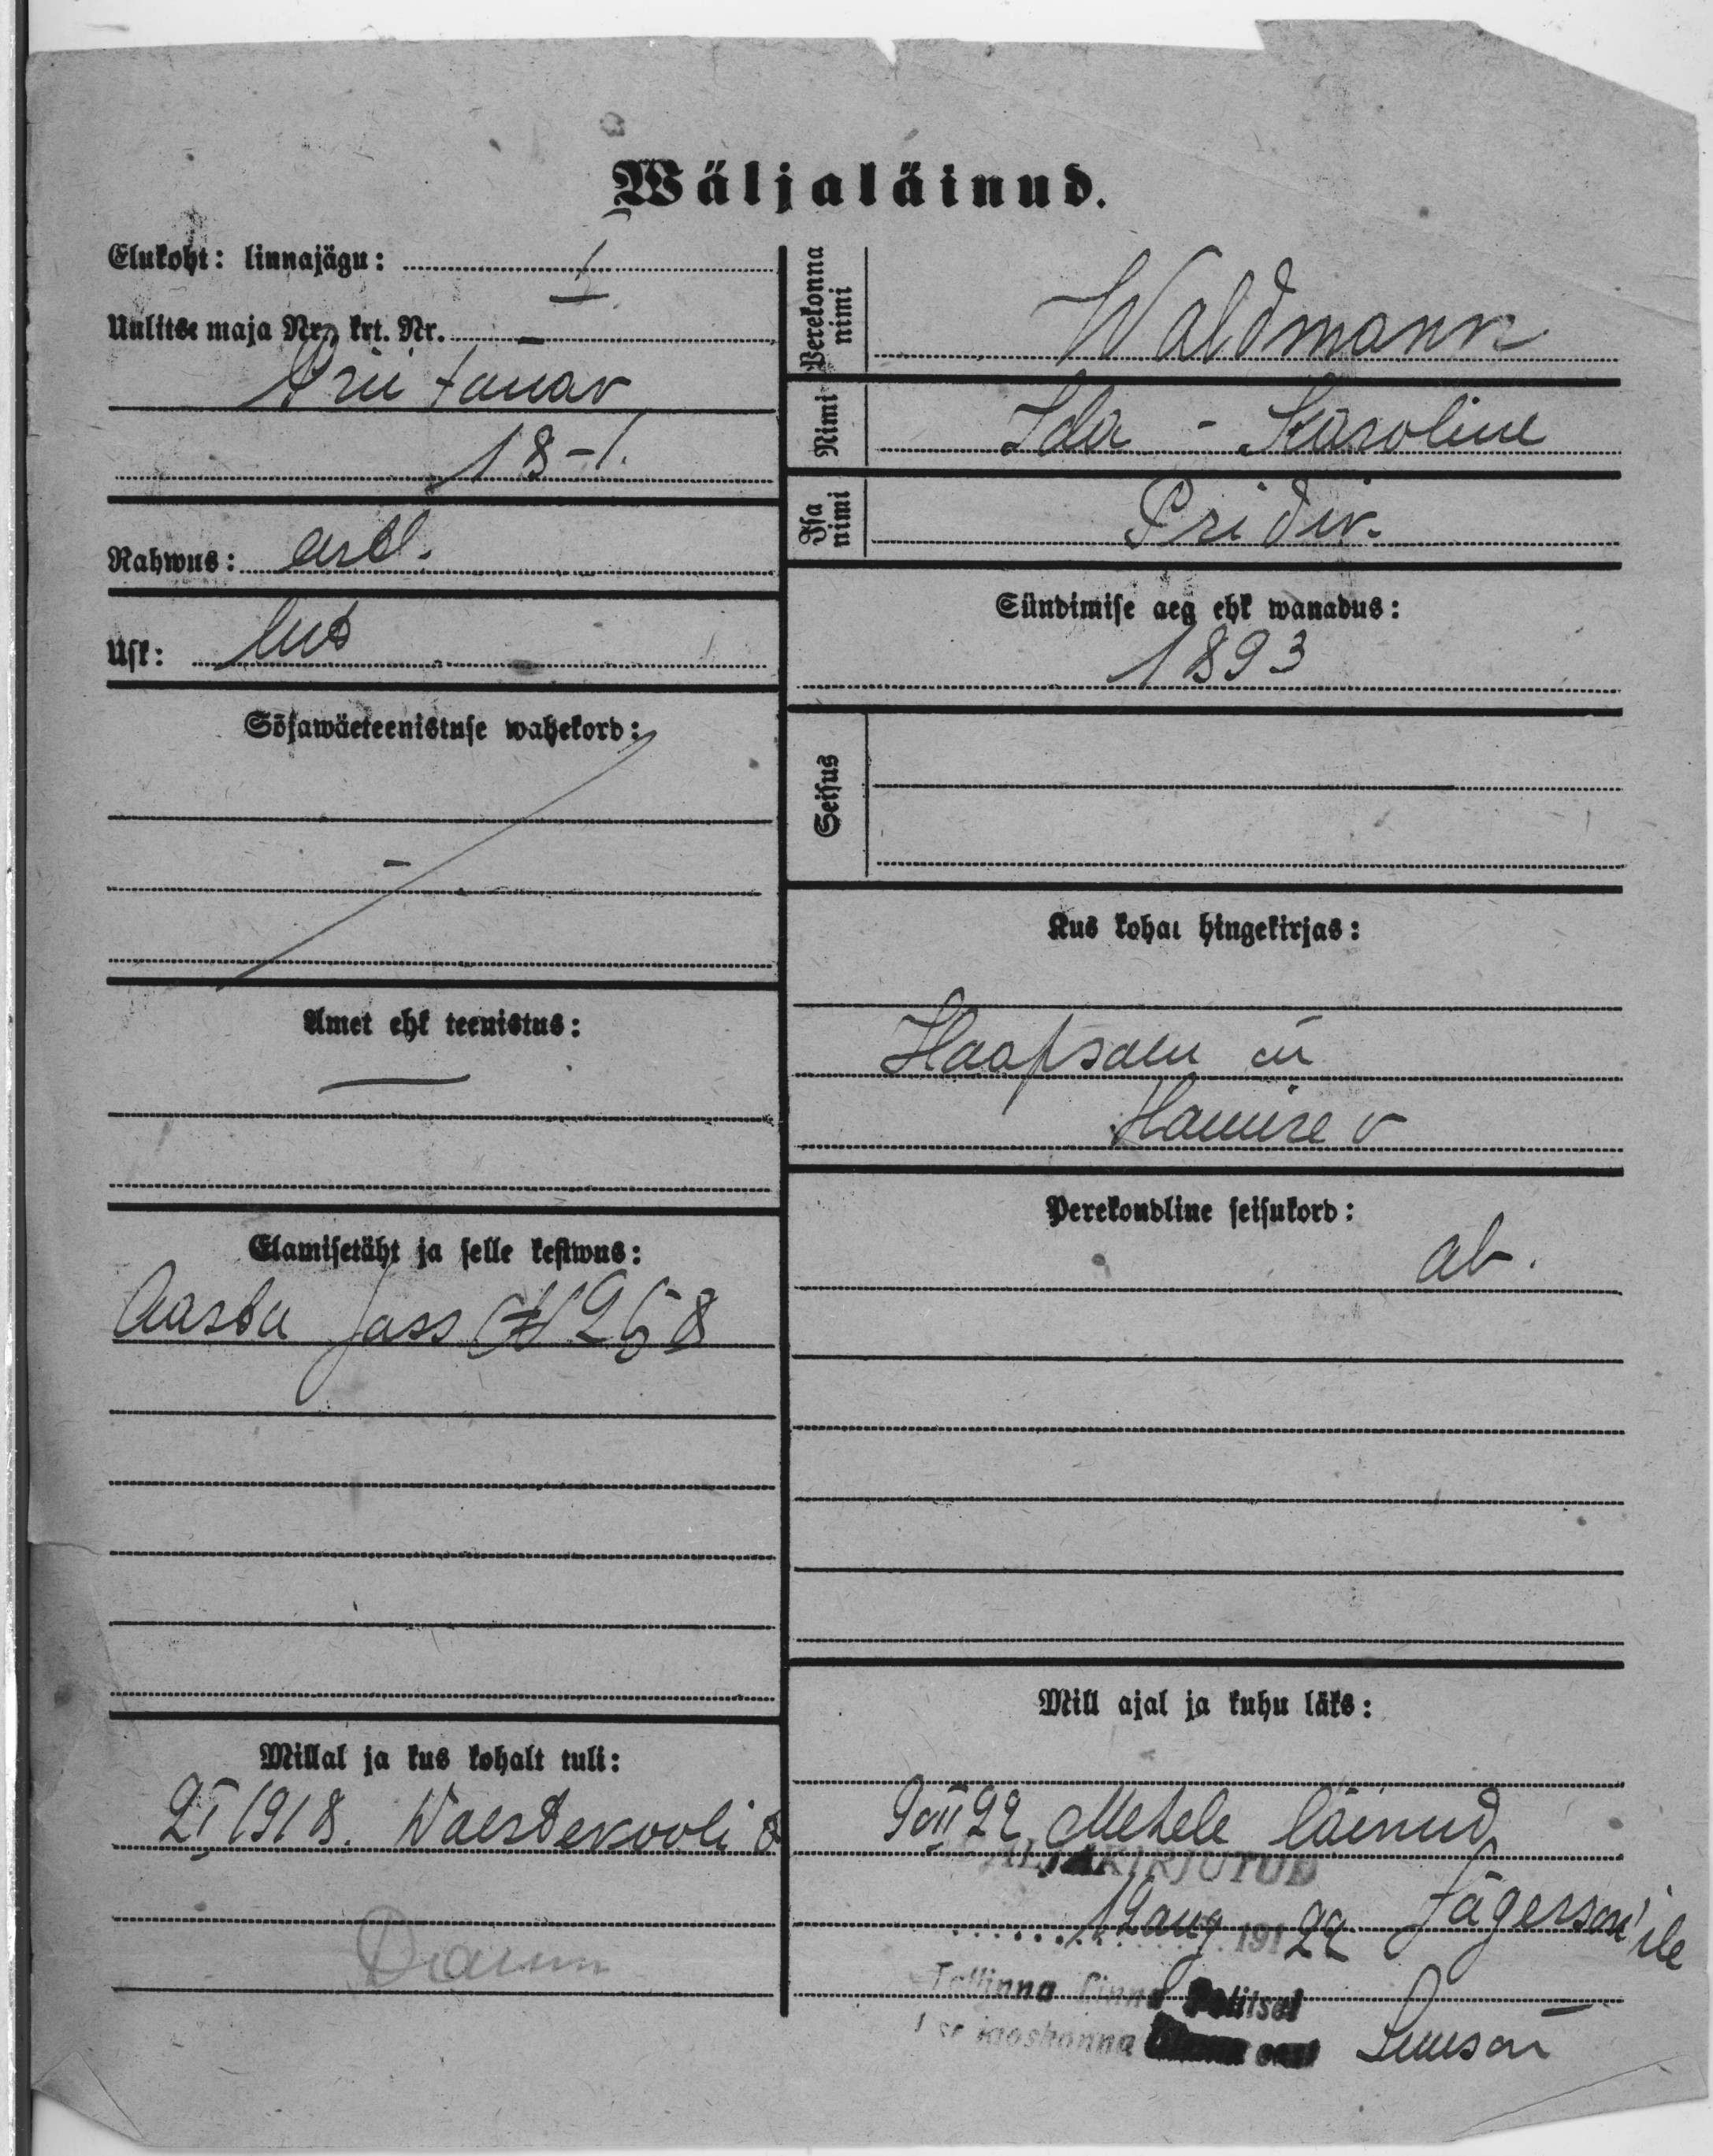 Wäljaläinud.
Elukoht: linnajägu: I
Uulitse maja Nr., krt. Nr. –
Prii tänav
18-1.
Rahwus: eestl.
Usk: lut
Sõjawäeteenistuse wahekord:
–
Amet ehk teenistus:
—
Elamisetäht ja selle kestwus:
Aasta pass № 268
Millal ja kus kohalt tuli:
2 I 1918. Waestekooli 8
Perekonna nimi Waldmann
Nimi Ida - Karoline
Isa nimi Pridik.
Sündimise aeg ehk wanadus:
1893
Seisus
Kus kohal hingekirjas:
Haapsalu
v
Perekondline seisukord:
ab.
Mill ajal ja kuhu läks:
22 Mehele läinud
ALJAKIRJUTUD
12 aug 191 22 Jägerson'ile
Tallinna Linna Politsei
jaoskonna